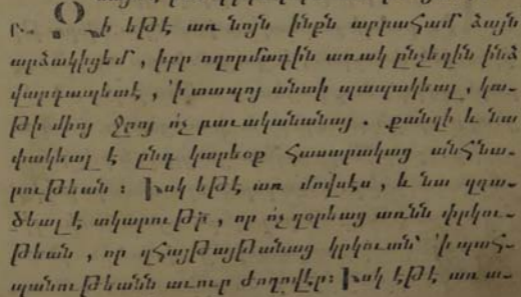 Զի եթէ առ նոյն ինքն աբրահամ ձայն
արձակիցեմ, իբր ողորմագին առակ ընչեղին ինձ
վարդապետէ, ՚ի տապոյ անտի պապակեալ, կա-
թի միոյ ջրոյ ոչ բաւականանայ. քանզի և նա
փակեալ է ընդ կարեօք հասարակաց անհնա-
րութեան: Իսկ եթէ առ մովսէս, և նա զղա-
ծեալ է տկարութբ, որ ոչ զօրեաց առնն փրկու-
թեան, որ զհայթայթանաց կրկուան ՚ի պահ-
պանութեանն աւուր ժողովէր: Իսկ եթէ առ ա-